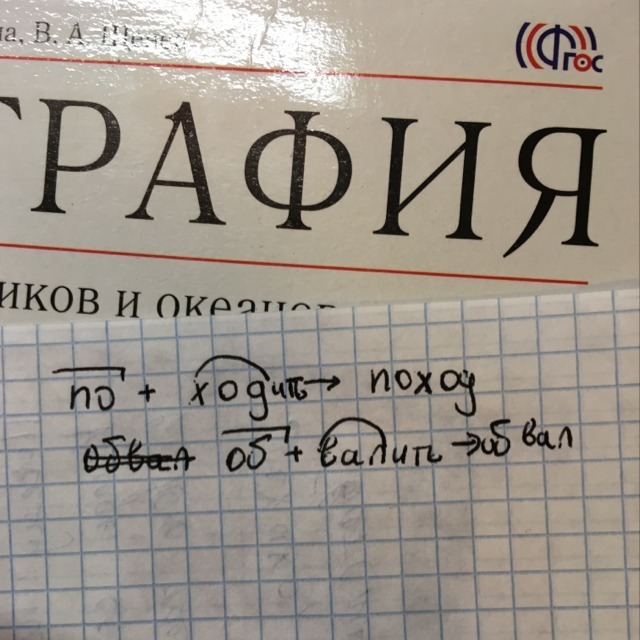 В. А. Щенев
ФГОС
ГРАФИЯ
иков и океанов
по + ходить → поход
обвал об + валить → обвал